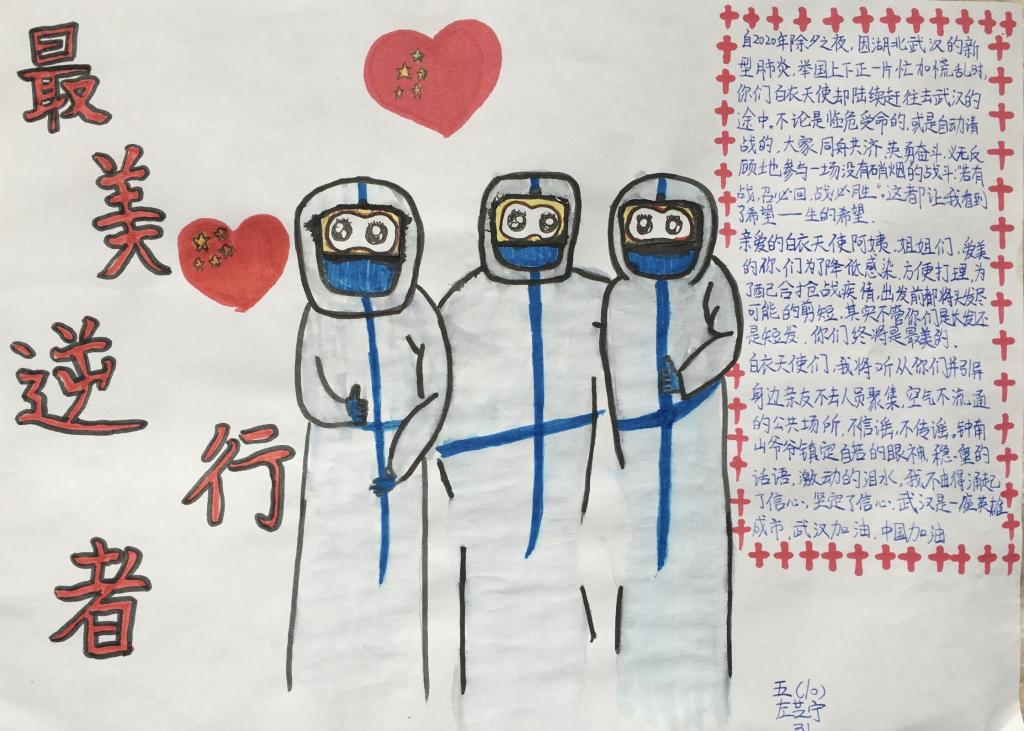 最
美
逆
行
者
自2020年除夕之夜，因湖北武汉的新
型肺炎，举国上下正一片忙加慌乱时，
你们白衣天使却陆续赶往去武汉的
途中。不论是临危受命的，或是自动请
战的，大家同舟共济，英勇奋斗，义无反
顾地参与一场没有硝烟的战斗：“若有
战，召必回，战必胜”。这都让我看到
了希望——生的希望．
亲爱的白衣天使阿姨、姐姐们，爱美
的你们为了降低感染，方便打理，为
了配合抢战疾情，出发前都将头发尽
可能的剪短，其实不管你们是长发还
是短发，你们终将是最美的．
白衣天使们，我将听从你们并引导
身边亲友不去人员聚集，空气不流通
的公共场所，不信谣，不传谣，钟南
山爷爷镇定自若的眼神，稳重的
话语，激动的泪水，我不由得涌起
了信心，坚定了信心．武汉是一座英雄
城市，武汉加油．中国加油
五(10)
左芝宁
31